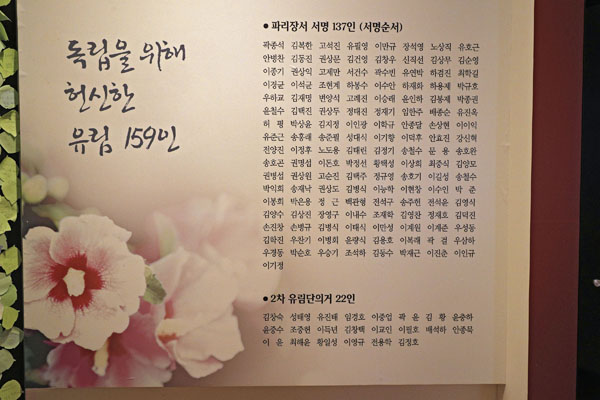 독립을 위해
헌신한
유림 159인
• 파리장서 서명 137인 (서명순서)
곽종석 김복한 고석진 유필영 이만규 장석영 노상직 유호근
안병찬 김동진 권상문 김건영 김창우 신직선 김상무 김순영
이종기 권상익 고제만 서건수 곽수빈 유연박 하겸진 최학길
이경균 이석균 조현계 하봉수 이수안 하재화 하용제 박규호
우하교 김재명 변양석 고례진 이승래 윤인하 김봉제 박종권
윤철수 김택진 권상두 정태진 정재기 임한주 배종순 유진옥
허 평 박상윤 김지정 이인광 이학규 안종달 손상현 이이익
유준근 송홍래 송준필 성대식 이기향 이덕후 안효진 강신혁
전양진 이정후 노도용 김태린 김정기 송철수 문 용 송호완
송호곤 권명섭 이돈호 박정선 황택성 이상희 최중식 김양모
권병섭 권상원 고순진 김택주 정규영 송호기 이길성 송철수
박익희 송재낙 권상도 김병식 이능학 이현창 이수인 박 준
이봉희 박은용 정 근 백관형 전석구 송주헌 전석윤 김영식
김양수 김상진 장영구 이내수 조재학 김영찬 정재호 김덕진
손진창 손병규 김병식 이태식 이만성 이계원 이계준 우성동
김학진 우찬기 이병회 윤량식 김용호 이복래 곽 걸 우삼하
우경동 박순호 우승기 조석하 김동수 박재근 이진춘 이인규
이기정
• 2차 유림단의거 22인
김창숙 성태영 유진태 임경호 이중업 곽 윤 김 황 윤중하
윤중수 조중헌 이득년 김창택 이교인 이필호 배석하 안종묵
이 윤 최해윤 황일성 이영규 전용학 김정호